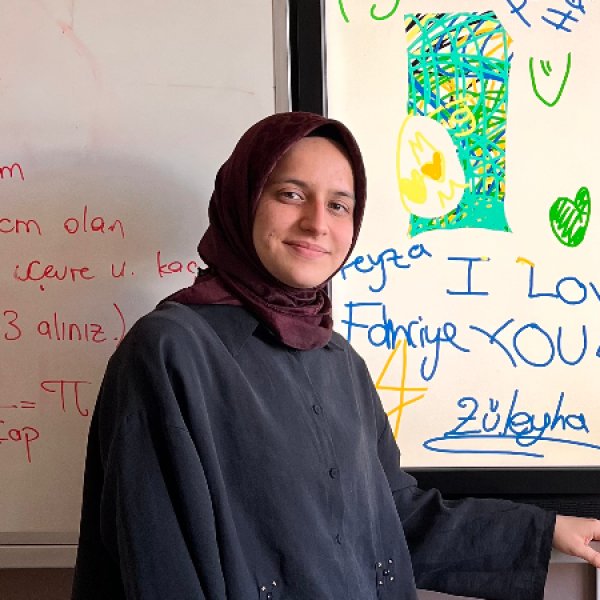 m
cm olan
çevre u. kaç
3 alınız.)
= π
Çap
feyza
I LOV
Fahriye YOU
Züleyha